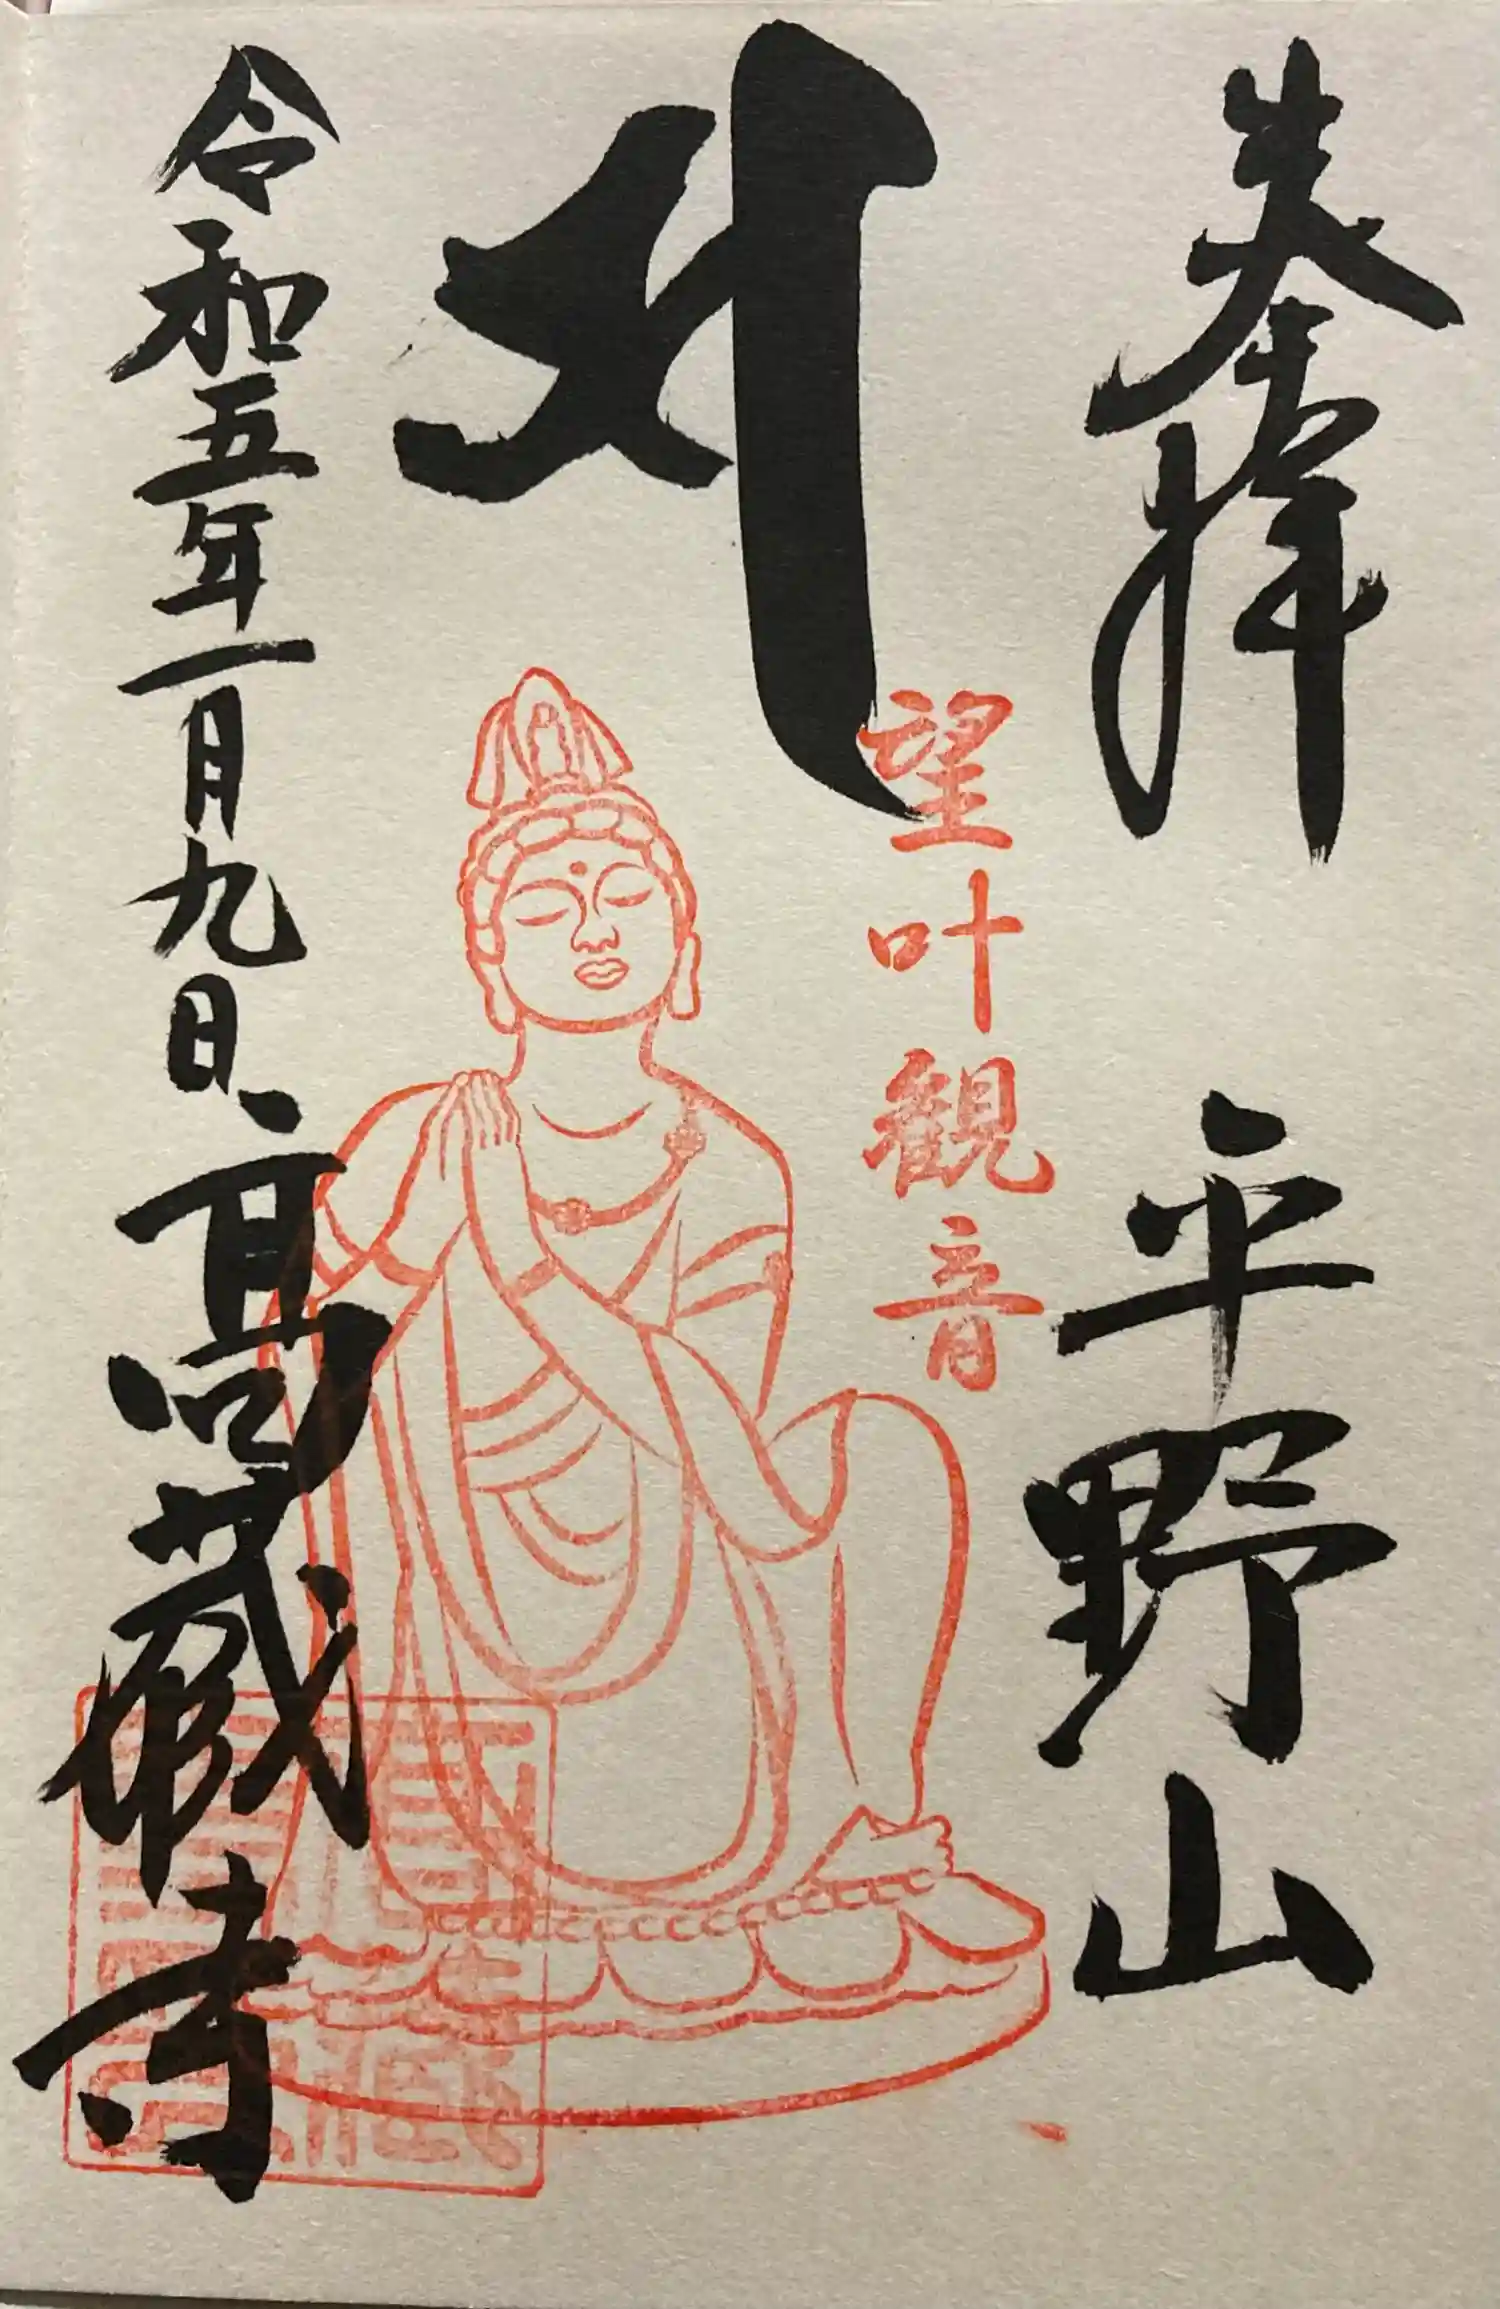 奉拝
平野山
望叶観音
サ
令和五年一月九日
高蔵寺